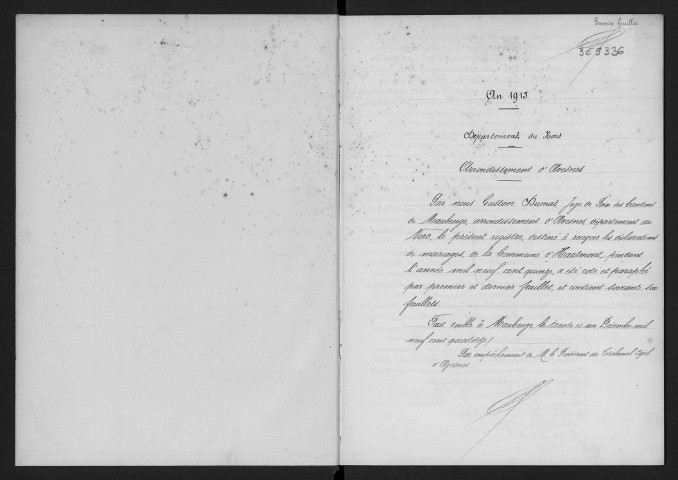 Premier feuillet
3E9336
An 1915
Département du Nord
Arrondissement d'Avesnes
Par nous Gustave Dumas, Juge de Paix des Cantons
de Maubeuge, arrondissement d'Avesnes département du
Nord, le présent registre, destiné à recevoir les déclarations
de mariages, de la Commune d'Hautmont, pendant
l'année mil neuf cent quinze, a été coté et paraphé
par premier et dernier feuillet, et contient soixante six
feuillets.
Fait à Maubeuge le trente et un Décembre mil
neuf cent quatorze /
Par empêchement de M. le Président du Tribunal Civil
d'Avesnes